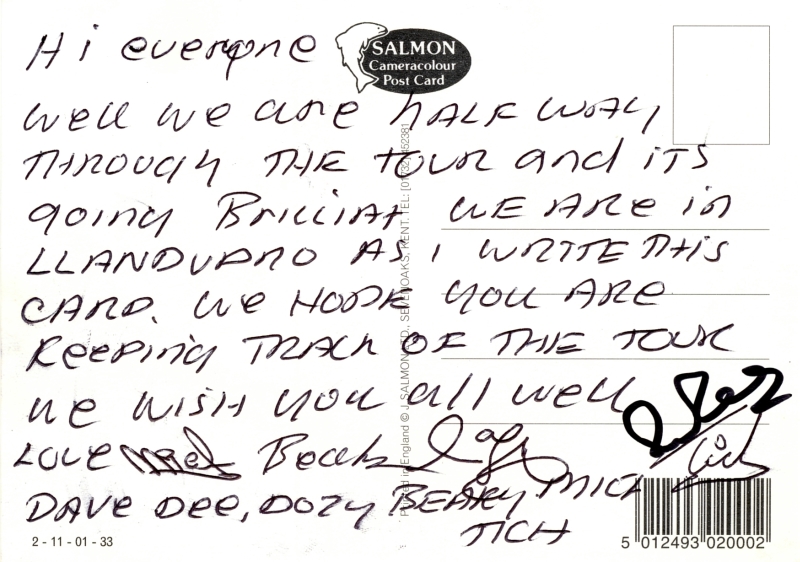 Hi everyone
SALMON
Cameracolour
Post Card
well we are HALF WAY
THROUGH THE TOUR and ITS
going BRILLIAT WE ARE in
LLANDUDNO AS I WRITE THIS
CARD. We HOPE YOU ARE
Keeping TRACK OF THE TOUR
we WISH YOU all well
LOVE Beaky
DAVE Dee, DOZY BEAKY MICK
TICH
Printed in England © J. SALMON LTD., SEVENOAKS, KENT. TEL: [01732] 452381
2 - 11 - 01 - 33
5 012493 020002